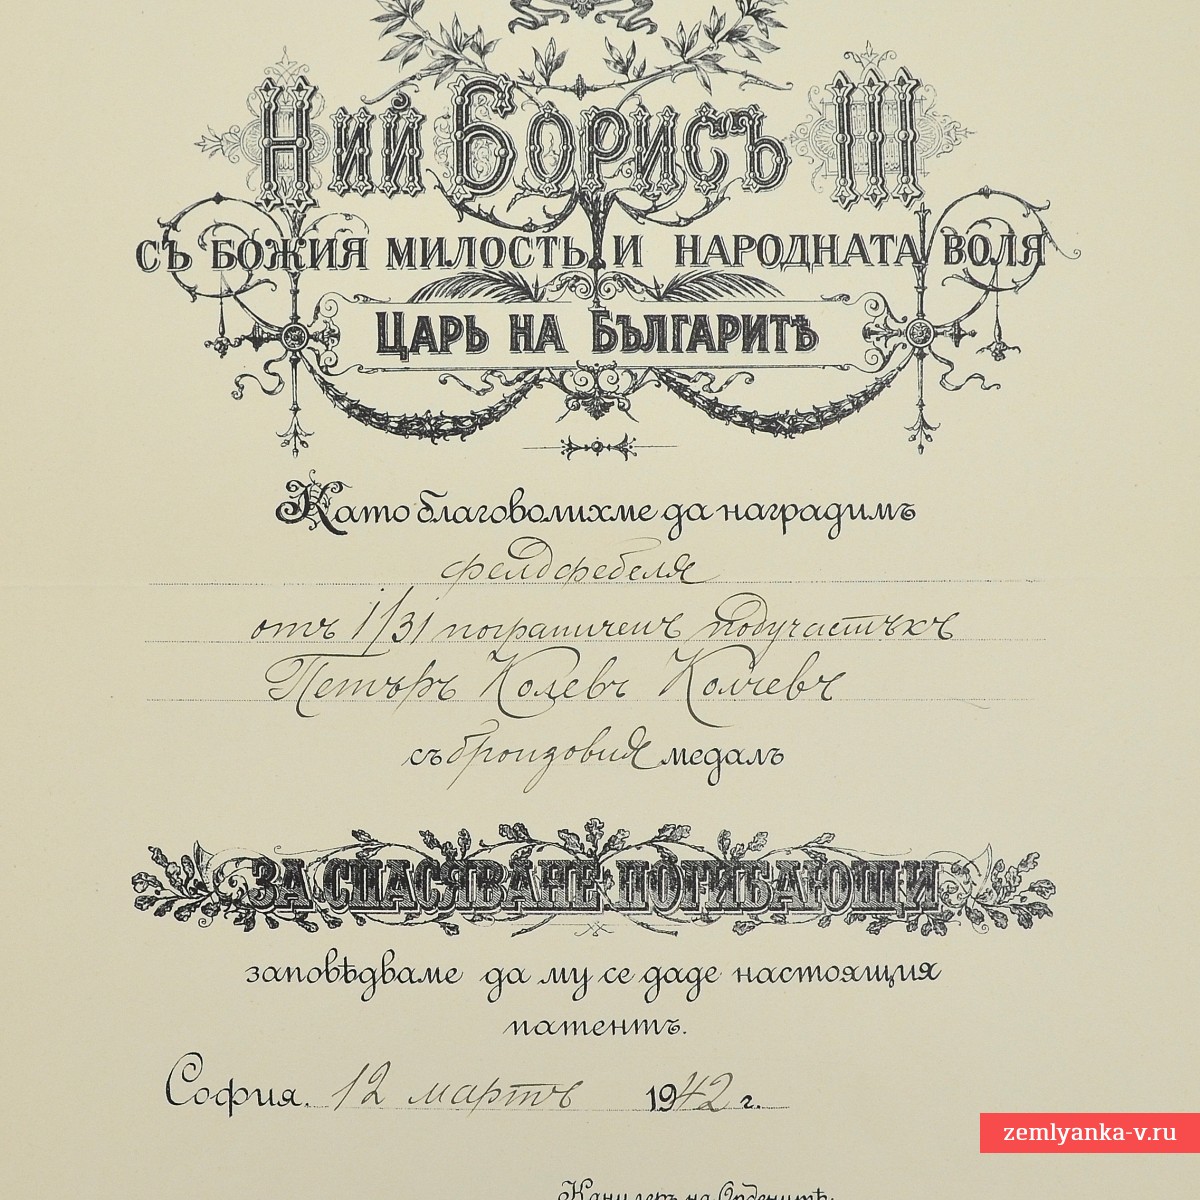 Ний Борисъ III
СЪ БОЖИЯ МИЛОСТЬ И НАРОДНАТА ВОЛЯ
ЦАРЬ НА БЪЛГАРИТѢ
Като благоволихме да наградимъ
фелдфебеля
отъ 1/31 пограниченъ подучастъкъ
Петъръ Колевъ Колчевъ
съ бронзовия медалъ
ЗА СПАСЯВАНЕ ПОГИБАЮЩИ
заповѣдваме да му се даде настоящия
патентъ.
София. 12 мартъ 1942 г.
zemlyanka-v.ru
Канцлеръ на Орденитѣ: